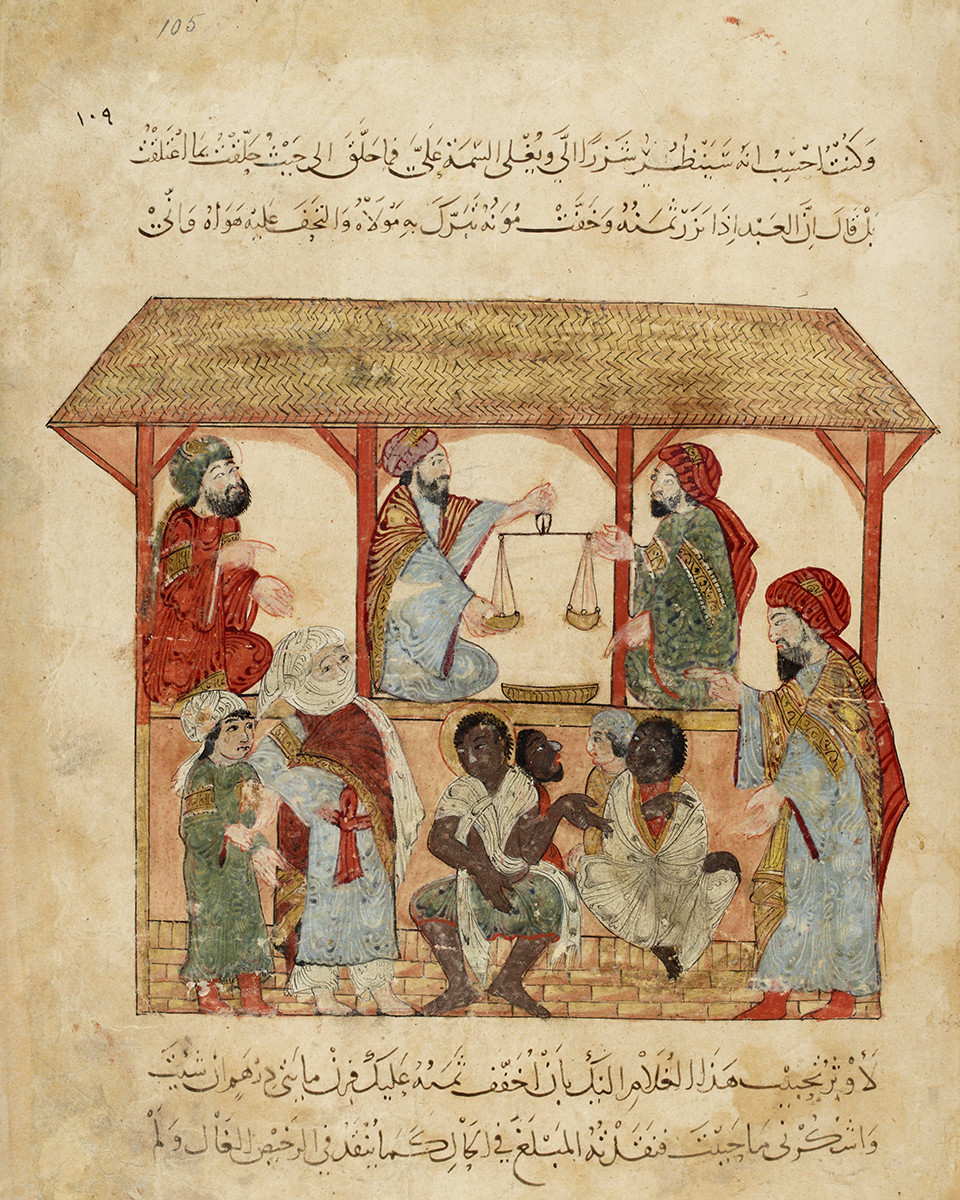 105
١٠٩
وَكُنْتُ احْسِبُ انه سَيَنْظُرُ شَزَرًا الَيَّ ويُغْلي السّمَةَ عَلَيَّ فما حَلَّقَ الى حَيْثُ حَلَّقْتُ بما اعْتَلَقْتُ
بَلْ قَالَ انَّ العَبْدَ اذَا نَزَرَ ثَمَنُهُ وَخَفَّتْ مُؤَنُهُ تَبَرَّكَ بِهِ مَوْلَاهُ وَالتحَفَ عليْهِ هَوَاهُ وَانّيْ
لَأُوثِرُ تَحْبِيْبَ هَذَا الغُلَامِ اليْكَ بانْ اُخَفِّفَ ثَمَنَهُ عَلَيْكَ فَزِنْ مائتي درْهَمٍ انْ شئتَ
وَاشْكُرْني مَا حَيِيْتَ فَنَقَدْتُهُ المَبْلَغَ في الحَالِ كَمَا يُنْقَدُ في الرَّخِيْصِ الغَالِ وَلَمْ